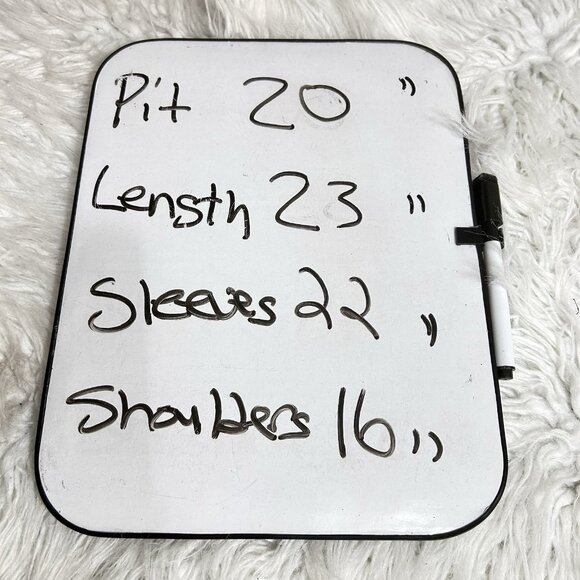 Pit 20 "
Length 23 "
Sleeves 22 "
Shoulders 16 "